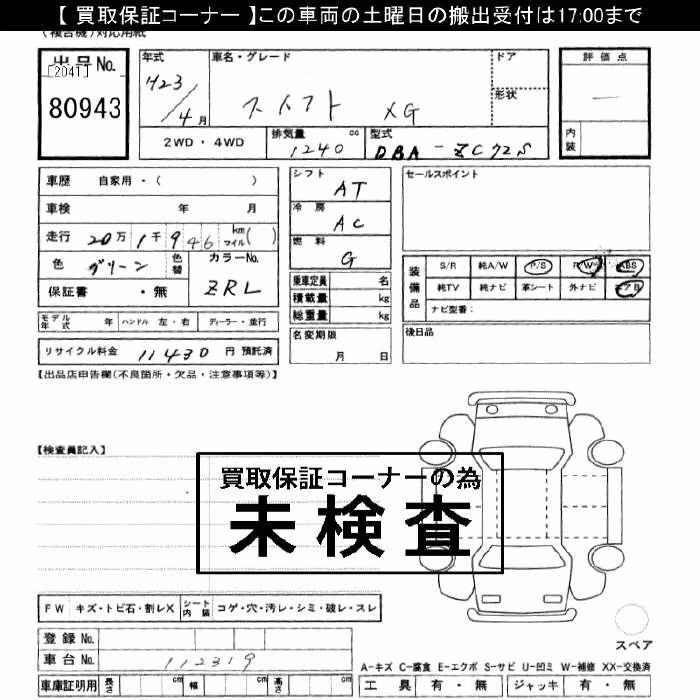 【 買取保証コーナー 】この車両の土曜日の搬出受付は17:00まで
(複合機)対応用紙
出品No.
[2041]
80943
年式
H23/4月
車名・グレード
スイフト XG
ドア
形状
評価点
内装
2WD・4WD
排気量 cc
1240
型式
DBA-ZC72S
車歴 自家用・( )
車検 年 月
走行 20万1千946 km マイル( )
色 グリーン
色替
カラーNo.
ZRL
保証書 ・無
モデル年式 年 ハンドル 左・右 ディーラー・並行
リサイクル料金 11430 円 預託済
シフト AT
冷房 AC
燃料 G
乗車定員 名
積載量 kg
総重量 kg
名変期限
月 日
セールスポイント
装備品
S/R 純A/W P/S P/W ABS
純TV 純ナビ 革シート 外ナビ エアB
ナビ型番:
後日品
【出品店申告欄(不良箇所・欠品・注意事項等)】
【検査員記入】
買取保証コーナーの為
未検査
FW キズ・トビ石・割レX シート内装 コゲ・穴・汚レ・シミ・破レ・スレ
スペア
登録No.
車台No. 112319
A-キズ C-腐食 E-エクボ S-サビ U-凹ミ W-補修 XX-交換済
車庫証明用 長さ cm 幅 cm 高さ cm
工具 有・無 ジャッキ 有・無